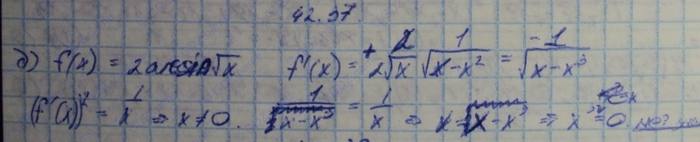 42.37.
д) f(x) = 2arcsin√x f'(x) = + 2/2√x 1/√x-x² = -1/√x-x³
(f'(x))² = 1/x ⇒ x≠0. 1/x-x³ = 1/x ⇒ x-x³ ⇒ x³=0